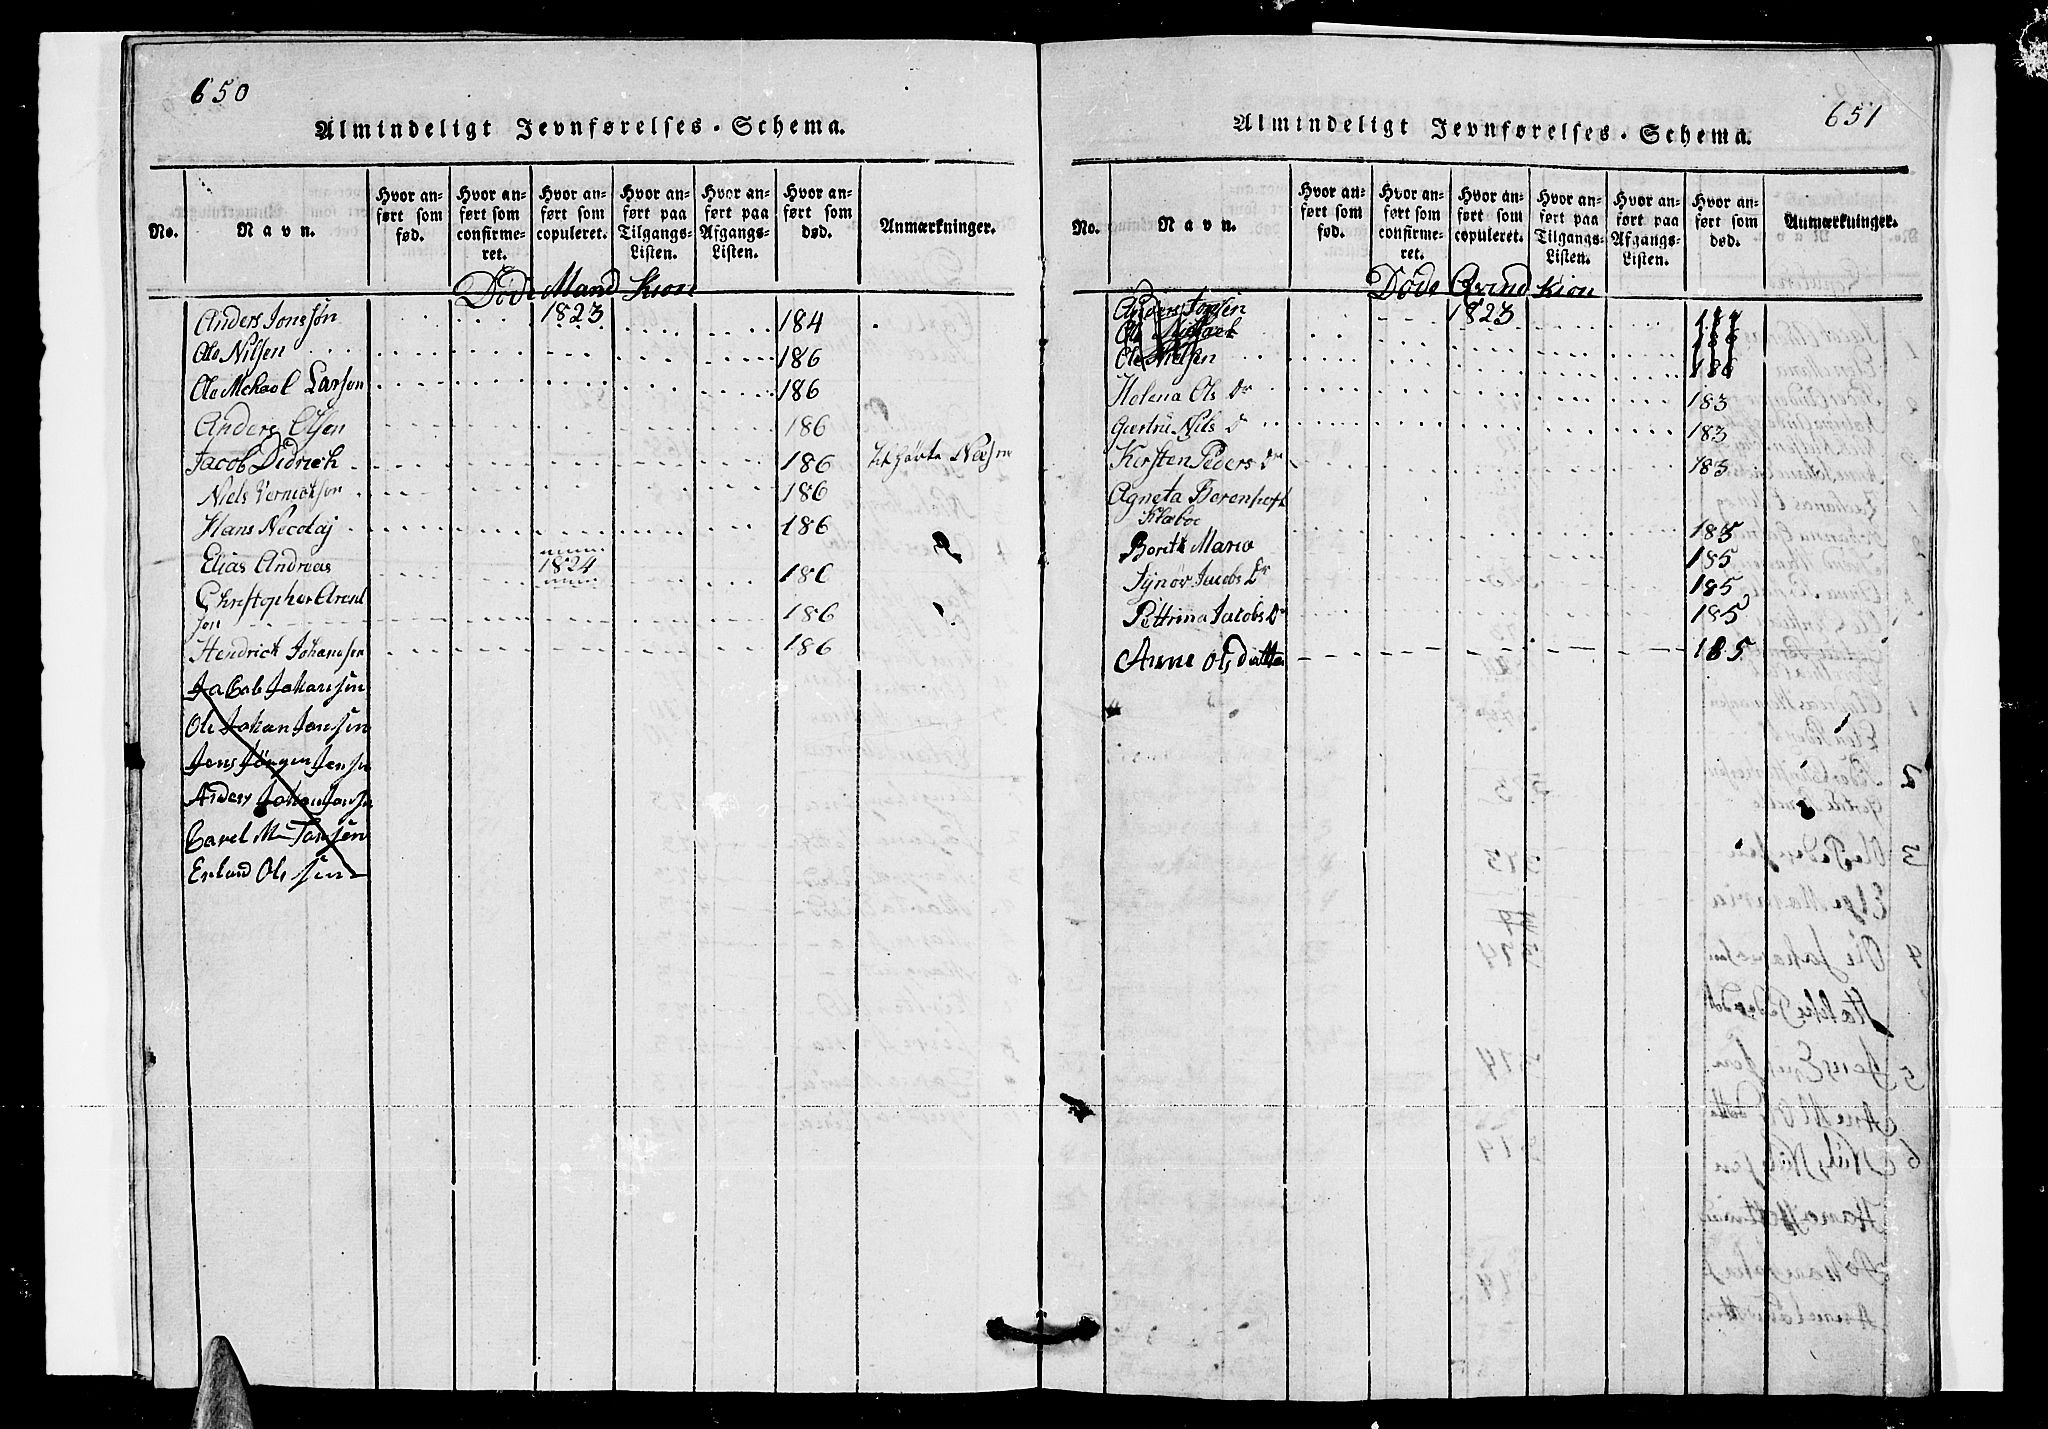 650
Almindeligt Jevnførelses-Schema.
No.
Navn.
Hvor anført som fød.
Hvor anført som confirmeret.
Hvor anført som copuleret.
Hvor anført paa Tilgangs-Listen.
Hvor anført paa Afgangs-Listen.
Hvor anført som død.
Anmærkninger.
Døde Mand Kiøn
Anders Jonssøn 1823 184
Ole Nilsen 186
Ole Michael Larson 186
Anders Olsen 186
Jacob Didrich 186
Niels 186
Hans Nicolaj 186
Elias Andreas 1824 186
Christopher Arent
søn 186
Hendrich Johansen 186
Jacob Johansen
Ole Johan Jonsen
Jens Jørgen Jensen
Anders Johan Jonsen
Carel M Jonsen
Erland Olssen
651
Almindeligt Jevnførelses-Schema.
No.
Navn.
Hvor anført som fød.
Hvor anført som confirmeret.
Hvor anført som copuleret.
Hvor anført paa Tilgangs-Listen.
Hvor anført paa Afgangs-Listen.
Hvor anført som død.
Anmærkninger.
Døde Qvind Kiøn
Anders Jonsen 1823 184
Ole Michael 186
Ole Nielsen 186
Helena Ols Dr 183
Giertru Nils D 183
Kirsten Peders Dr 183
Agneta
Klæboe 185
Borith Maria 185
Synøv Jacobs Dr 185
Pettrina Jacobs Dr 185
Anne Olsdatter 185